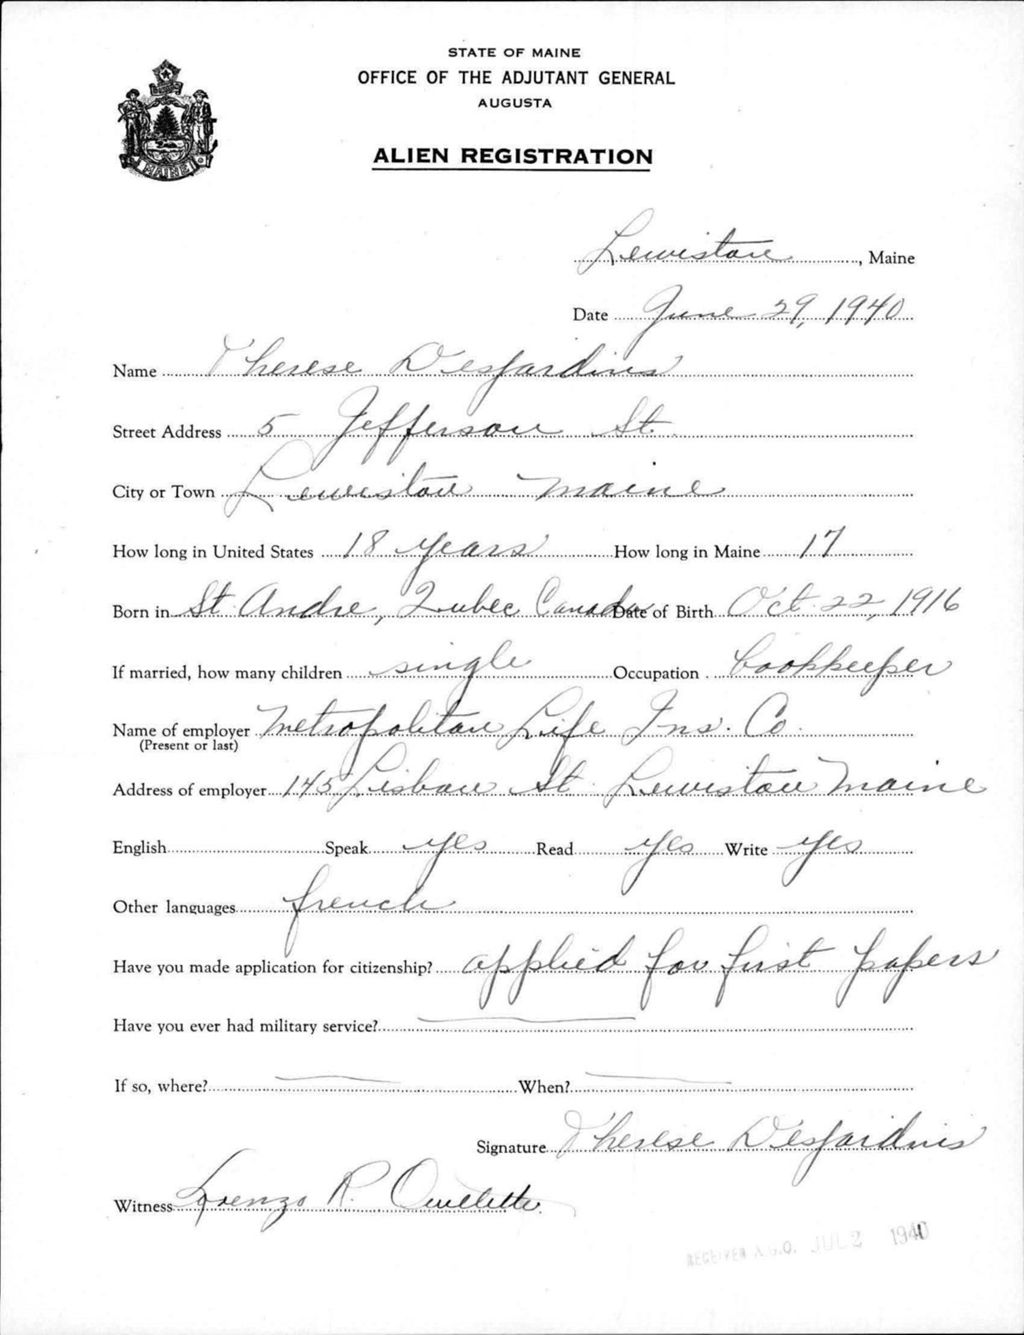 STATE OF MAINE
OFFICE OF THE ADJUTANT GENERAL
AUGUSTA
ALIEN REGISTRATION
MAINE
Lewiston, Maine
Date June 29, 1940
Name Therese Desjardins
Street Address 5 Jefferson St.
City or Town Lewiston Maine
How long in United States 18 years How long in Maine 17
Born in St Andre, Qubec Canada Date of Birth Oct 22, 1916
If married, how many children single Occupation bookkeeper
Name of employer Metropolitan Life Ins. Co.
(Present or last)
Address of employer 145 Lisbon St Lewiston Maine
English Speak yes Read yes Write yes
Other languages french
Have you made application for citizenship? applied for first papers
Have you ever had military service?
If so, where? When?
Signature Therese Desjardins
Witness Lorenzo R. Ouellette
RECEIVED A.G.O. JUL 2 1940